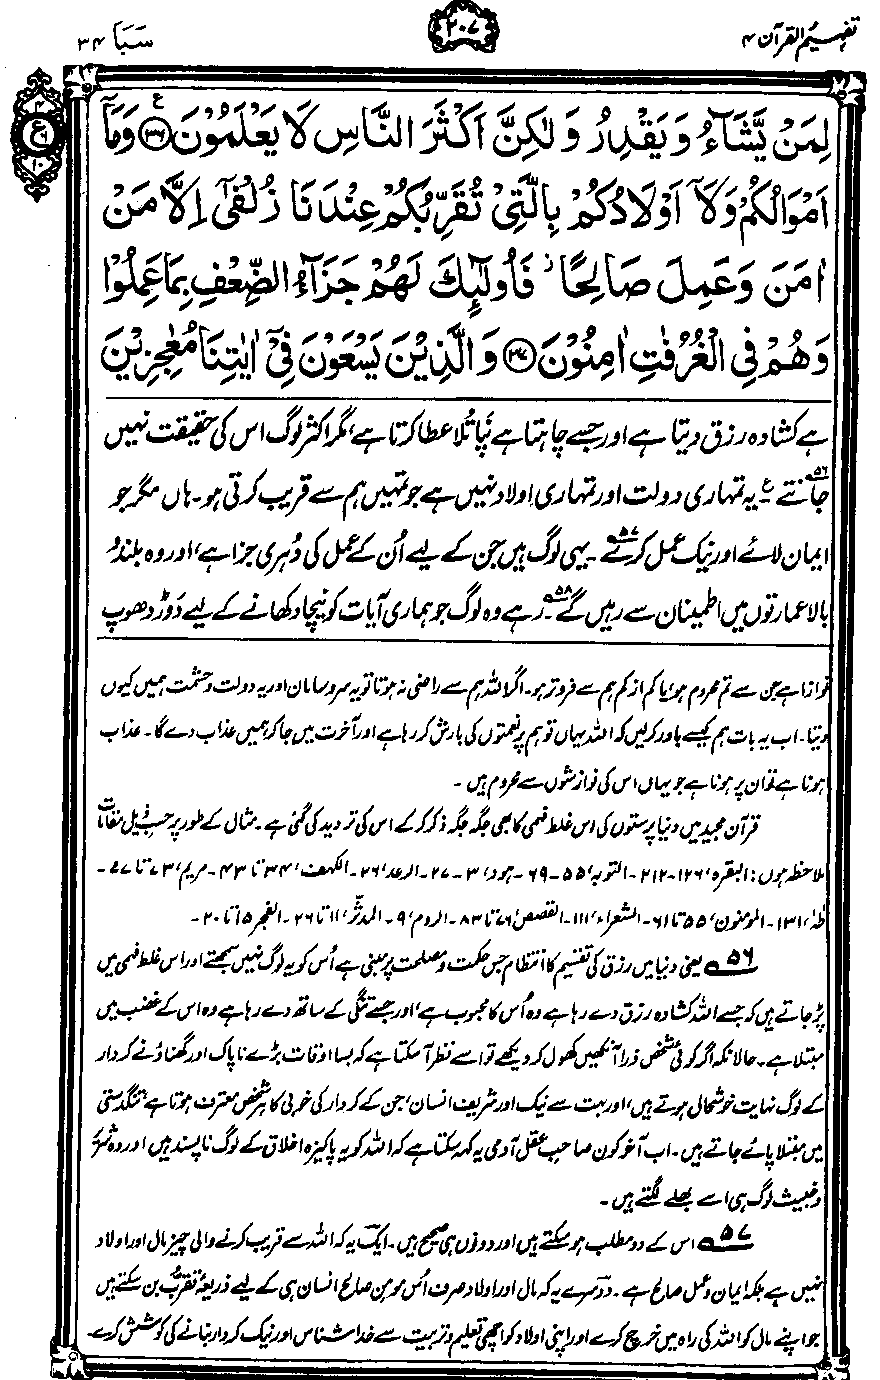 تفہیم القرآن ۴
۲۰۷
سَبَا ۳۴
لِمَنْ يَّشَآءُ وَيَقْدِرُ وَلٰكِنَّ اَكْثَرَ النَّاسِ لَا يَعْلَمُوْنَ ﴿۳۶﴾ ع وَمَآ
اَمْوَالُكُمْ وَلَآ اَوْلَادُكُمْ بِالَّتِيْ تُقَرِّبُكُمْ عِنْدَنَا زُلْفٰٓى اِلَّا مَنْ
اٰمَنَ وَعَمِلَ صَالِحًا ۡ فَاُولٰٓئِكَ لَهُمْ جَزَآءُ الضِّعْفِ بِمَا عَمِلُوْا
وَهُمْ فِي الْغُرُفٰتِ اٰمِنُوْنَ ﴿۳۷﴾ وَالَّذِيْنَ يَسْعَوْنَ فِيْٓ اٰيٰتِنَا مُعٰجِزِيْنَ
ہے کشادہ رزق دیتا ہے اور جسے چاہتا ہے نَپا تُلا عطا کرتا ہے، مگر اکثر لوگ اس کی حقیقت نہیں
جانتے ۵۶ ؏ یہ تمہاری دولت اور تمہاری اولاد نہیں ہے جو تمہیں ہم سے قریب کرتی ہو۔ ہاں مگر جو
ایمان لائے اور نیک عمل کرے ۵۷۔ یہی لوگ ہیں جن کے لیے اُن کے عمل کی دُہری جزا ہے، اور وہ بلند و
بالا عمارتوں میں اطمینان سے رہیں گے ۵۸۔ رہے وہ لوگ جو ہماری آیات کو نیچا دکھانے کے لیے دَوڑ دھوپ
نوازا ہے جن سے تم محروم ہو، یا کم از کم ہم سے فروتر ہو۔ اگر اللہ ہم سے راضی نہ ہوتا تو یہ سروسامان اور یہ دولت و حشمت ہمیں کیوں
دیتا۔ اب یہ بات ہم کیسے باور کرلیں کہ اللہ یہاں تو ہم پر نعمتوں کی بارش کر رہا ہے اور آخرت میں جاکر ہمیں عذاب دے گا۔ عذاب
ہونا ہے تو ان پر ہونا ہے جو یہاں اس کی نوازشوں سے محروم ہیں۔
قرآن مجید میں دنیا پرستوں کی اس غلط فہمی کا بھی جگہ جگہ ذکر کرکے اس کی تردید کی گئی ہے۔ مثال کے طور پر حسبِ ذیل مقامات
ملاحظہ ہوں: البقرہ، ۱۲۶-۲۱۲۔ التوبہ، ۵۵-۶۹۔ ہود، ۳-۲۷۔ الرعد، ۲۶۔ الکہف، ۳۴ تا ۴۳۔ مریم، ۷۳ تا ۷۷۔
طٰہٰ، ۱۳۱۔ المؤمنون، ۵۵ تا ۶۱۔ الشعراء، ۱۱۱۔ القصص، ۷۶ تا ۸۳۔ الروم، ۹۔ المدثر، ۱۱ تا ۲۶۔ الفجر ۱۵ تا ۲۰۔
۵۶ یعنی دنیا میں رزق کی تقسیم کا انتظام جس حکمت و مصلحت پر مبنی ہے اُس کو یہ لوگ نہیں سمجھتے اور اس غلط فہمی میں
پڑ جاتے ہیں کہ جسے اللہ کشادہ رزق دے رہا ہے وہ اُس کا محبوب ہے، اور جسے تنگی کے ساتھ دے رہا ہے وہ اس کے غضب میں
مبتلا ہے۔ حالانکہ اگر کوئی شخص ذرا آنکھیں کھول کر دیکھے تو اسے نظر آ سکتا ہے کہ بسا اوقات بڑے ناپاک اور گھناؤنے کردار
کے لوگ نہایت خوشحال ہوتے ہیں، اور بہت سے نیک اور شریف انسان، جن کے کردار کی خوبی کا ہر شخص معترف ہوتا ہے، تنگدستی
میں مبتلا پائے جاتے ہیں۔ اب آخر کون صاحبِ عقل آدمی یہ کہہ سکتا ہے کہ اللہ کو یہ پاکیزہ اخلاق کے لوگ ناپسند ہیں اور وہ شریر
و خبیث لوگ ہی اسے بھلے لگتے ہیں۔
۵۷ اس کے دو مطلب ہو سکتے ہیں اور دونوں ہی صحیح ہیں۔ ایک یہ کہ اللہ سے قریب کرنے والی چیز مال اور اولاد
نہیں ہے بلکہ ایمان و عمل صالح ہے۔ دوسرے یہ کہ مال اور اولاد صرف اُس مومن صالح انسان ہی کے لیے ذریعۂ تقرب بن سکتے ہیں
جو اپنے مال کو اللہ کی راہ میں خرچ کرے اور اپنی اولاد کو اچھی تعلیم و تربیت سے خدا شناس اور نیک کردار بنانے کی کوشش کرے